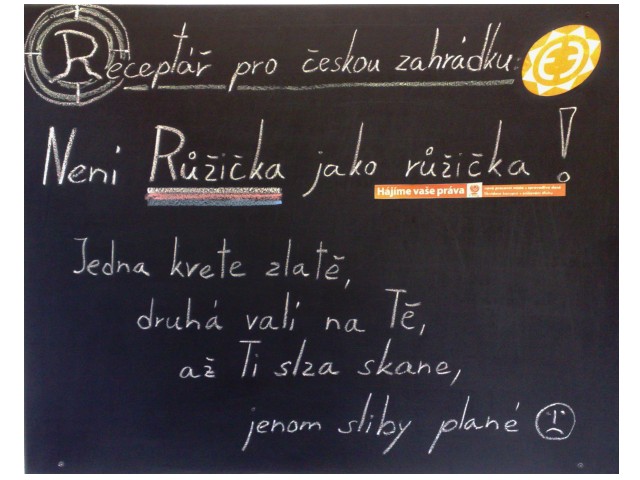 Receptář pro českou zahrádku:
Není Růžička jako růžička!
Hájíme vaše práva
Jedna kvete zlatě,
druhá valí na Tě,
až Ti slza skane,
jenom sliby plané